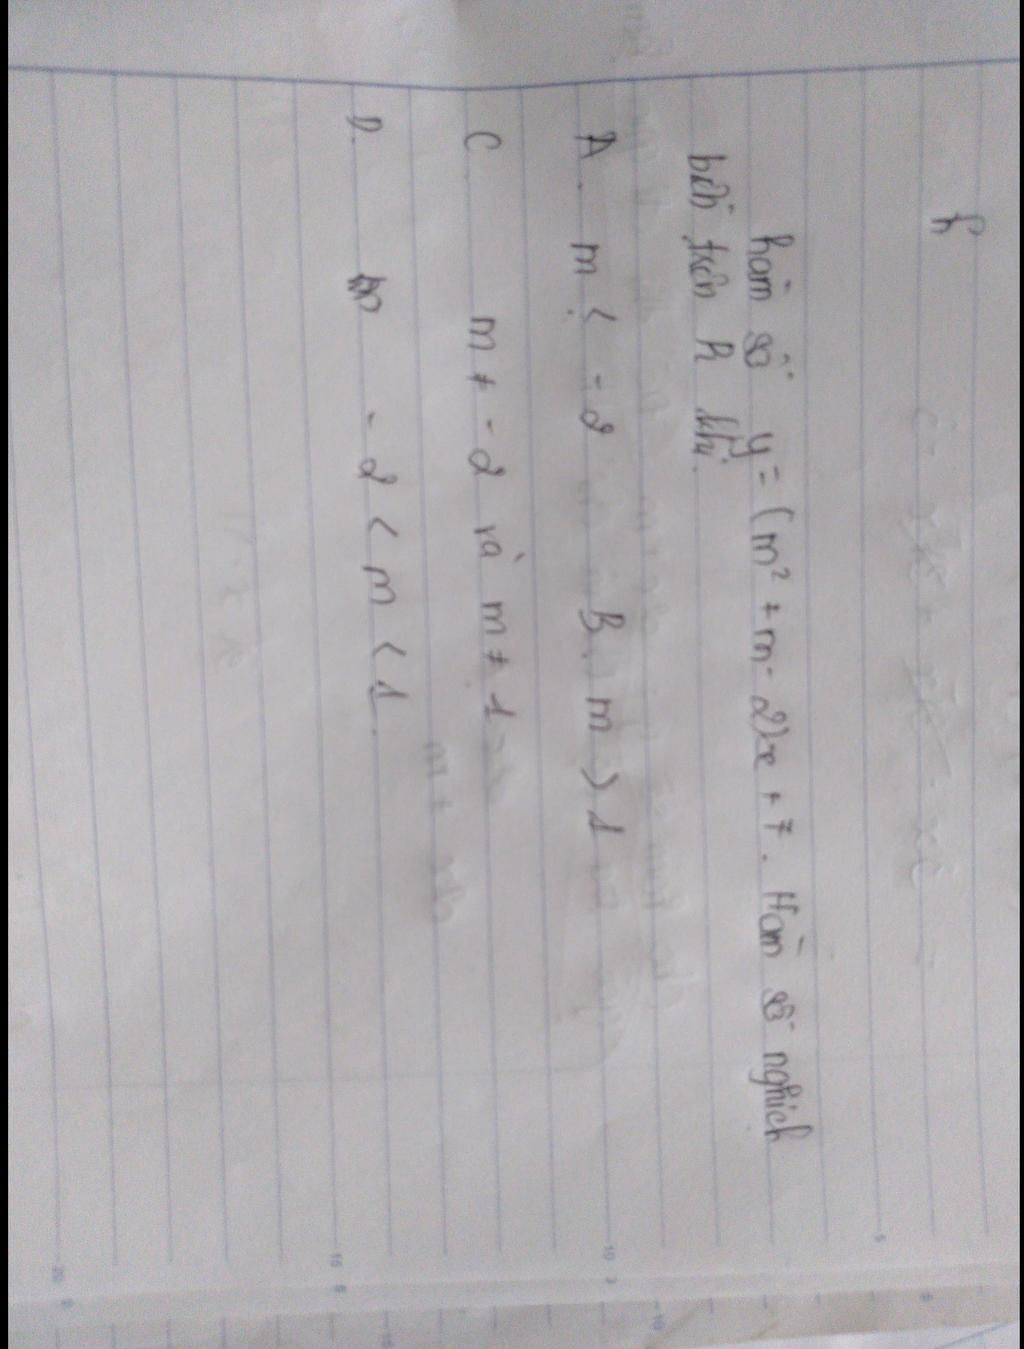 h
hàm số y = (m² + m - 2)x + 7. Hàm số nghịch
biến trên R khi.
A. m < -2 B. m > 1
C m ≠ -2 và m ≠ 1
D. - 2 < m < 1
5
10
15
20